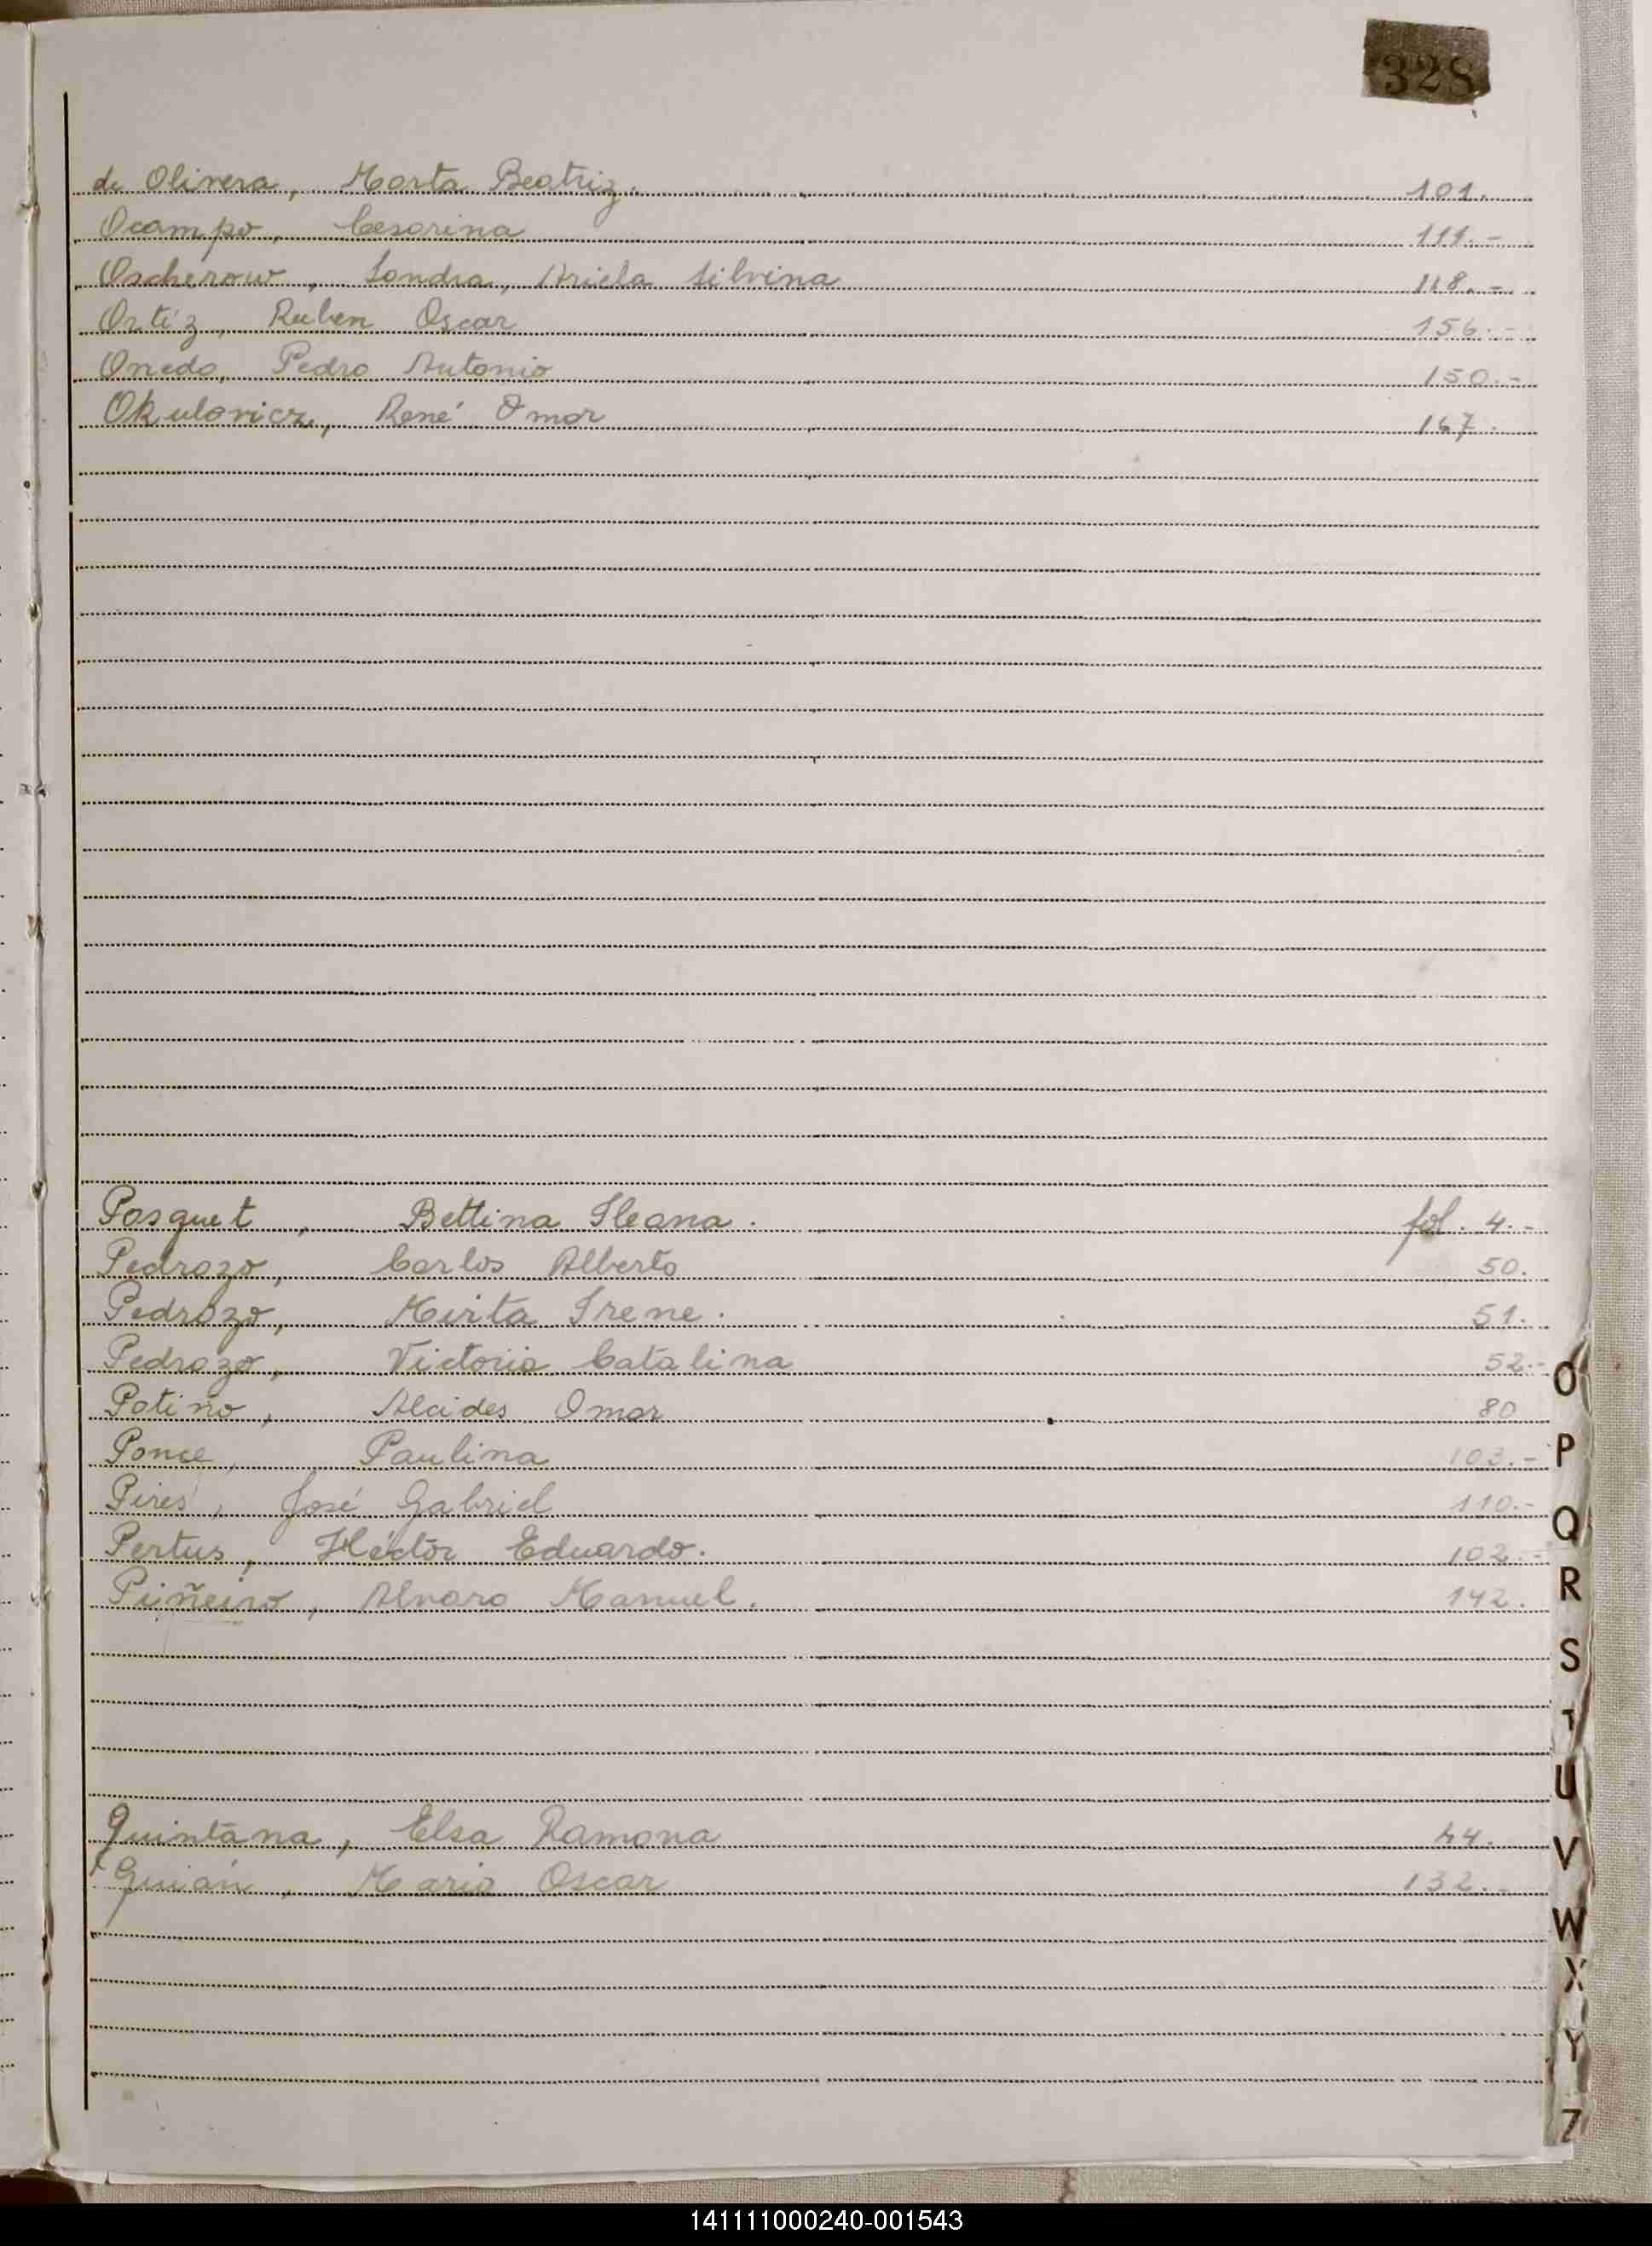 328
de Olivera, Marta Beatriz. 101.
Ocampo, Cesarina 111.-
Oscherow, Sandra, Ariela Silvina 118.-
Ortíz, Ruben Oscar 156.-
Onedo, Pedro Antonio 150.-
Okulovicz, René Omar 167.
Pasquet, Bettina Ileana. fol. 4.-
Pedrozo, Carlos Alberto 50.
Pedrozo, Mirta Irene. 51.
Pedrozo, Victoria Catalina 52.-
Patiño, Alcides Omar 80
Ponce, Paulina 103.-
Pires, José Gabriel 110.-
Pertus, Héctor Eduardo. 102.-
Piñeiro, Alvaro Manuel. 142.
Quintana, Elsa Ramona 44.
Mario Oscar 132.-
O
P
Q
R
S
T
U
V
W
X
Y
Z
141111000240-001543